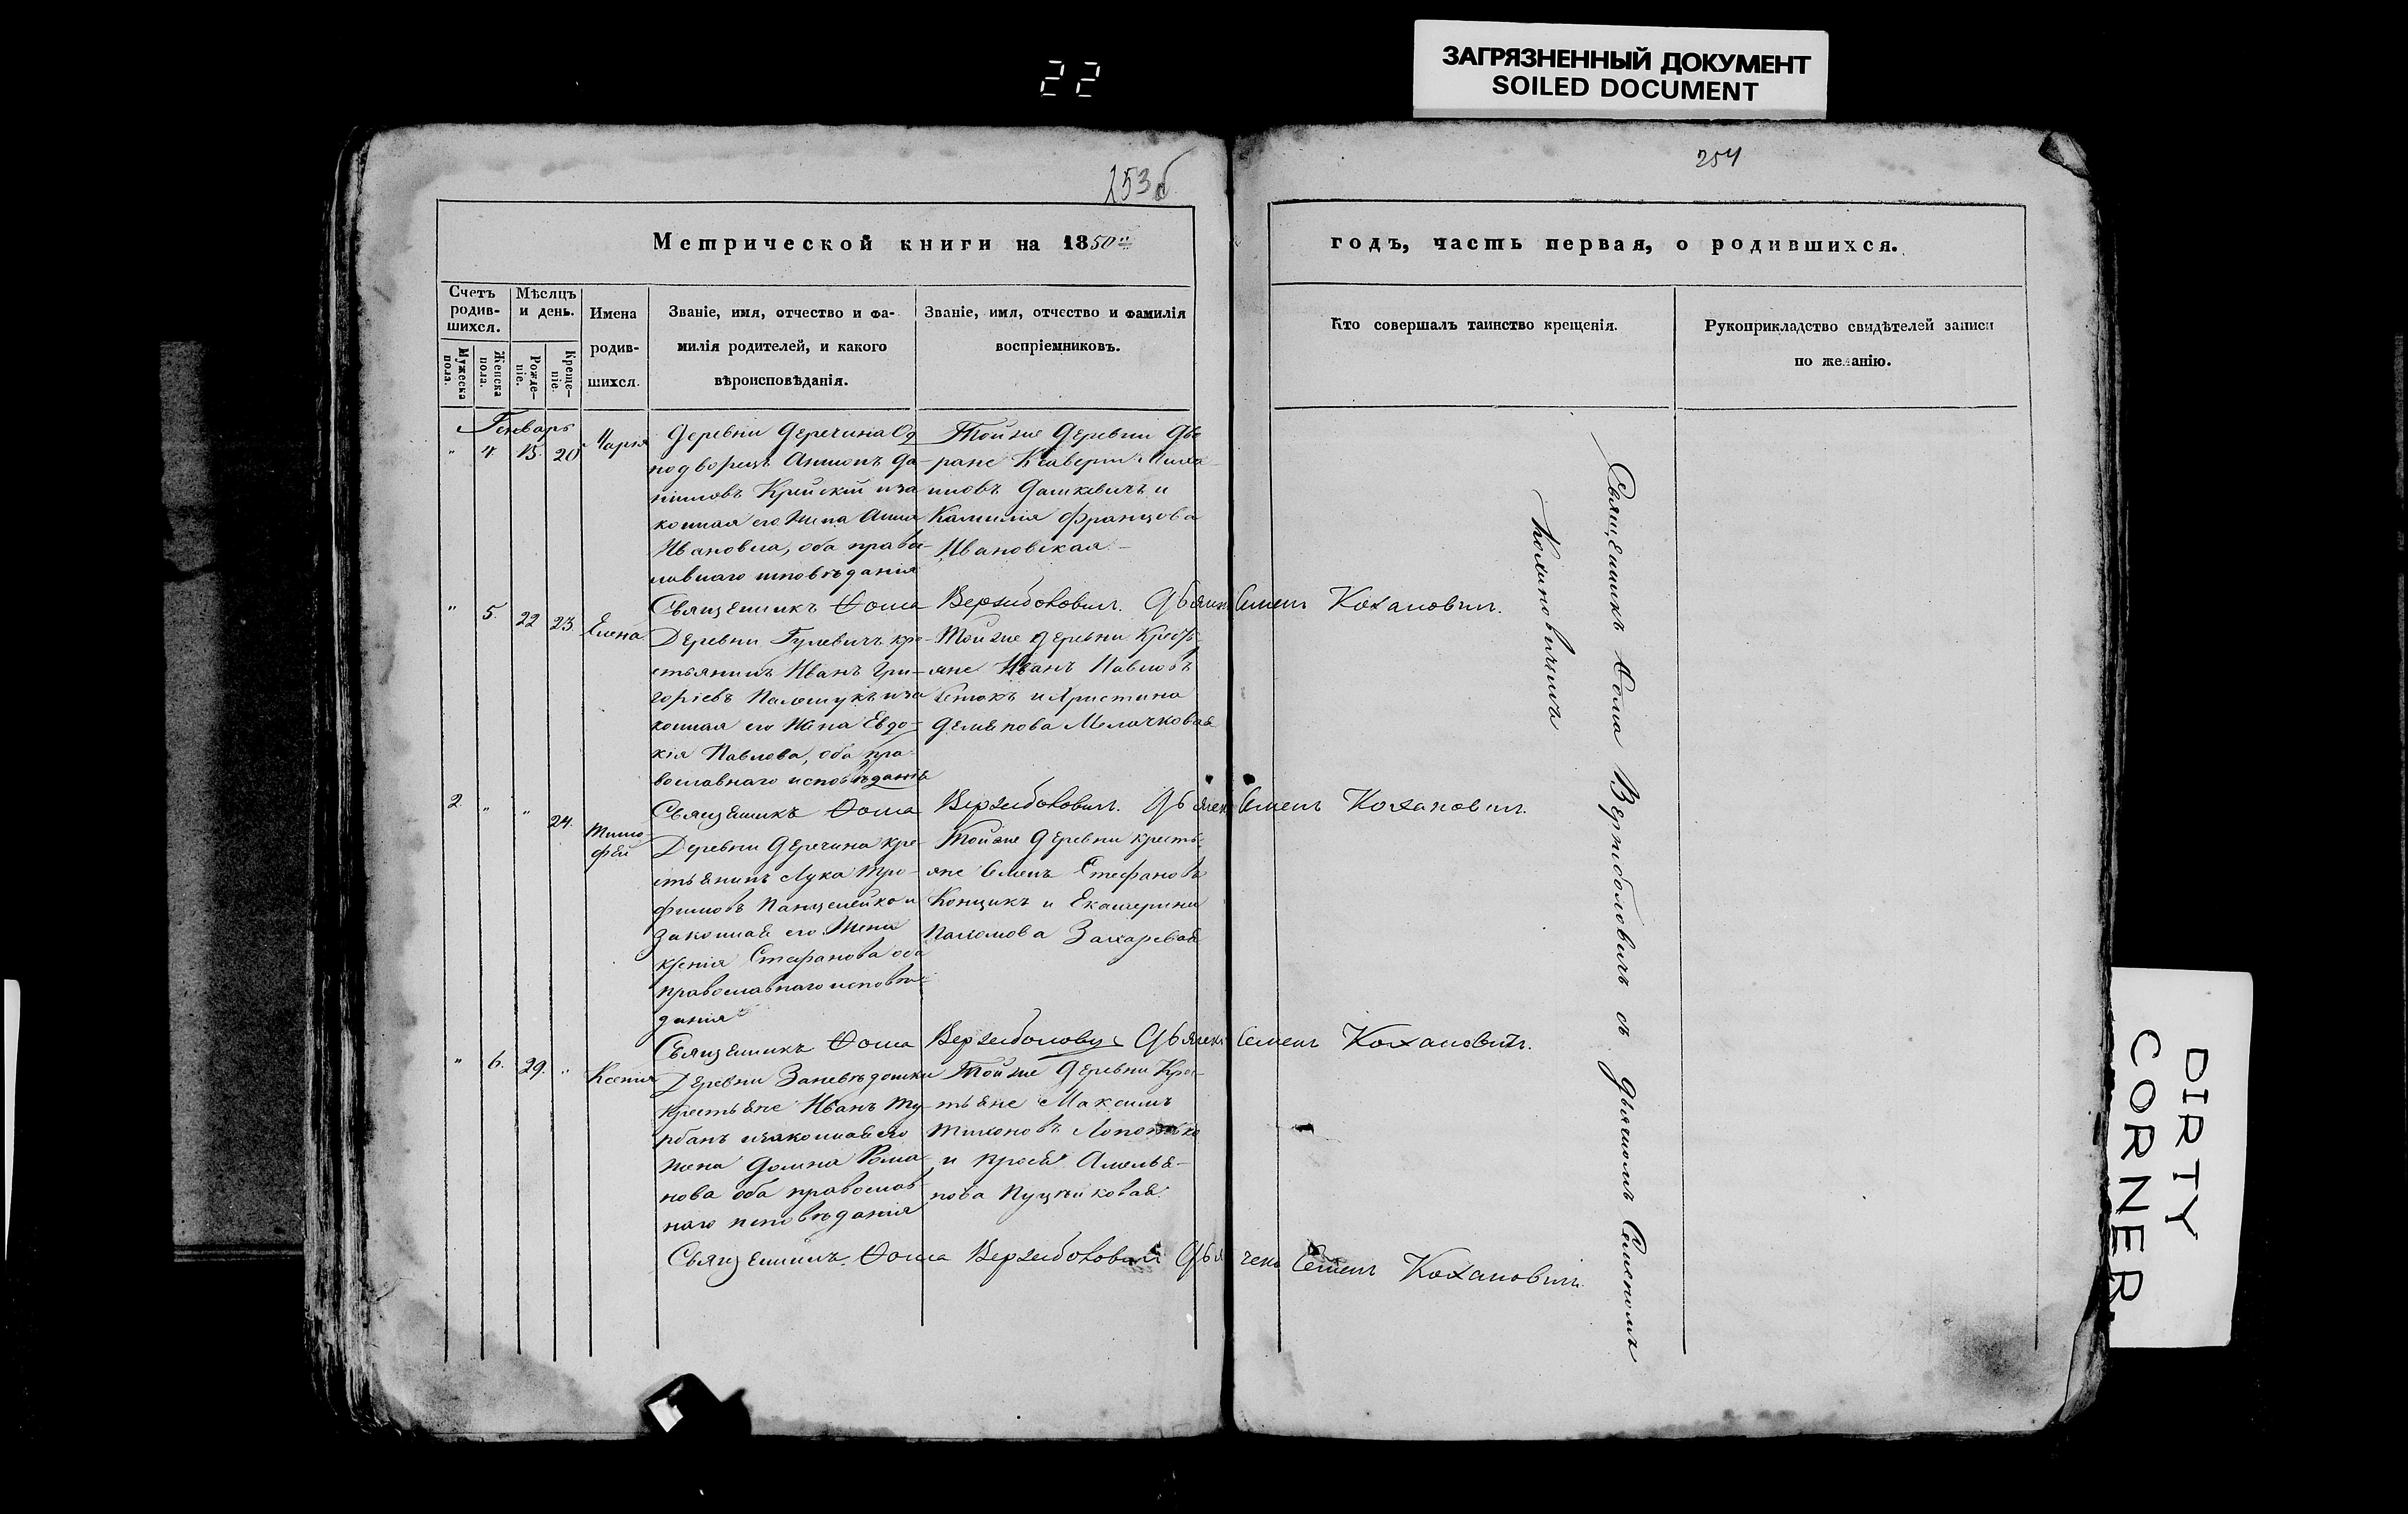 22
ЗАГРЯЗНЕННЫЙ ДОКУМЕНТ
SOILED DOCUMENT
253б
254
Метрической книги на 1850
годъ, часть первая, о родившихся.
Счетъ родив-шихся.
Мѣсяцъ и день.
Мужеска пола.
Женска пола.
Рожде-ніе.
Креще-ніе.
Имена
родив-
шихся.
Званіе, имя, отчество и фа-
милія родителей, и какого
вѣроисповѣданія.
Званіе, имя, отчество и фамилія
воспріемниковъ.
Кто совершалъ таинство крещенія.
Рукоприкладство свидѣтелей записи
по желанію.
Генварь
" 4. 13. 20 Марія
Деревни Деречина Од
нодворецъ Антонъ Да-
ниловъ Крейскій и за
конная его Жена Анна
Ивановна, оба право-
славнаго исповѣданія
Тойже Деревни Дво
ране Ксаверій Михай-
ловъ Дашкевичъ и
Камилія Францова
Ивановская
Священникъ Ѳома Вержболовичъ. Дьячекъ Семенъ Кохановичъ.
" 5. 22 23. Елена
Деревни Гулевичъ кре-
стьянинъ Иванъ Гри-
горіевъ и за
конная его Жена Евдо-
кія Павлова, оба пра-
вославнаго исповѣданія
Тойже деревни Кресть
яне Иванъ Павловъ
и Христина
Демянова
Священникъ Ѳома Вержболовичъ. Дьячекъ Семенъ Кохановичъ
2. " " 24. Тимо
фѣй
Деревни Деречина кре-
стьянинъ Лука Тро-
фимовъ и
законная его Жена
Ксенія Стефанова оба
православнаго исповѣ-
данія
Тойже Деревни кресть-
яне Семенъ Стефановъ
Концикъ и Екатерина
Пахомова Захаревая
Священникъ Ѳома Вержболовичъ Дьячекъ Семенъ Кохановичъ.
" 6. 29. " Ксенія
Деревни
крестьяне Иванъ Ту-
рбанъ и законная его
жена Домна Рома-
нова оба православ-
наго исповѣданія
Тойже Деревни Кре-
стьяне Максимъ
Тихоновъ
и Амелья-
нова
Священникъ Ѳома Вержболовичъ Дьячекъ Семенъ Кохановичъ.
Священникъ Ѳома Вержболовичъ съ Дьячкомъ Семеномъ
Кохановичемъ
DIRTY
CORNER